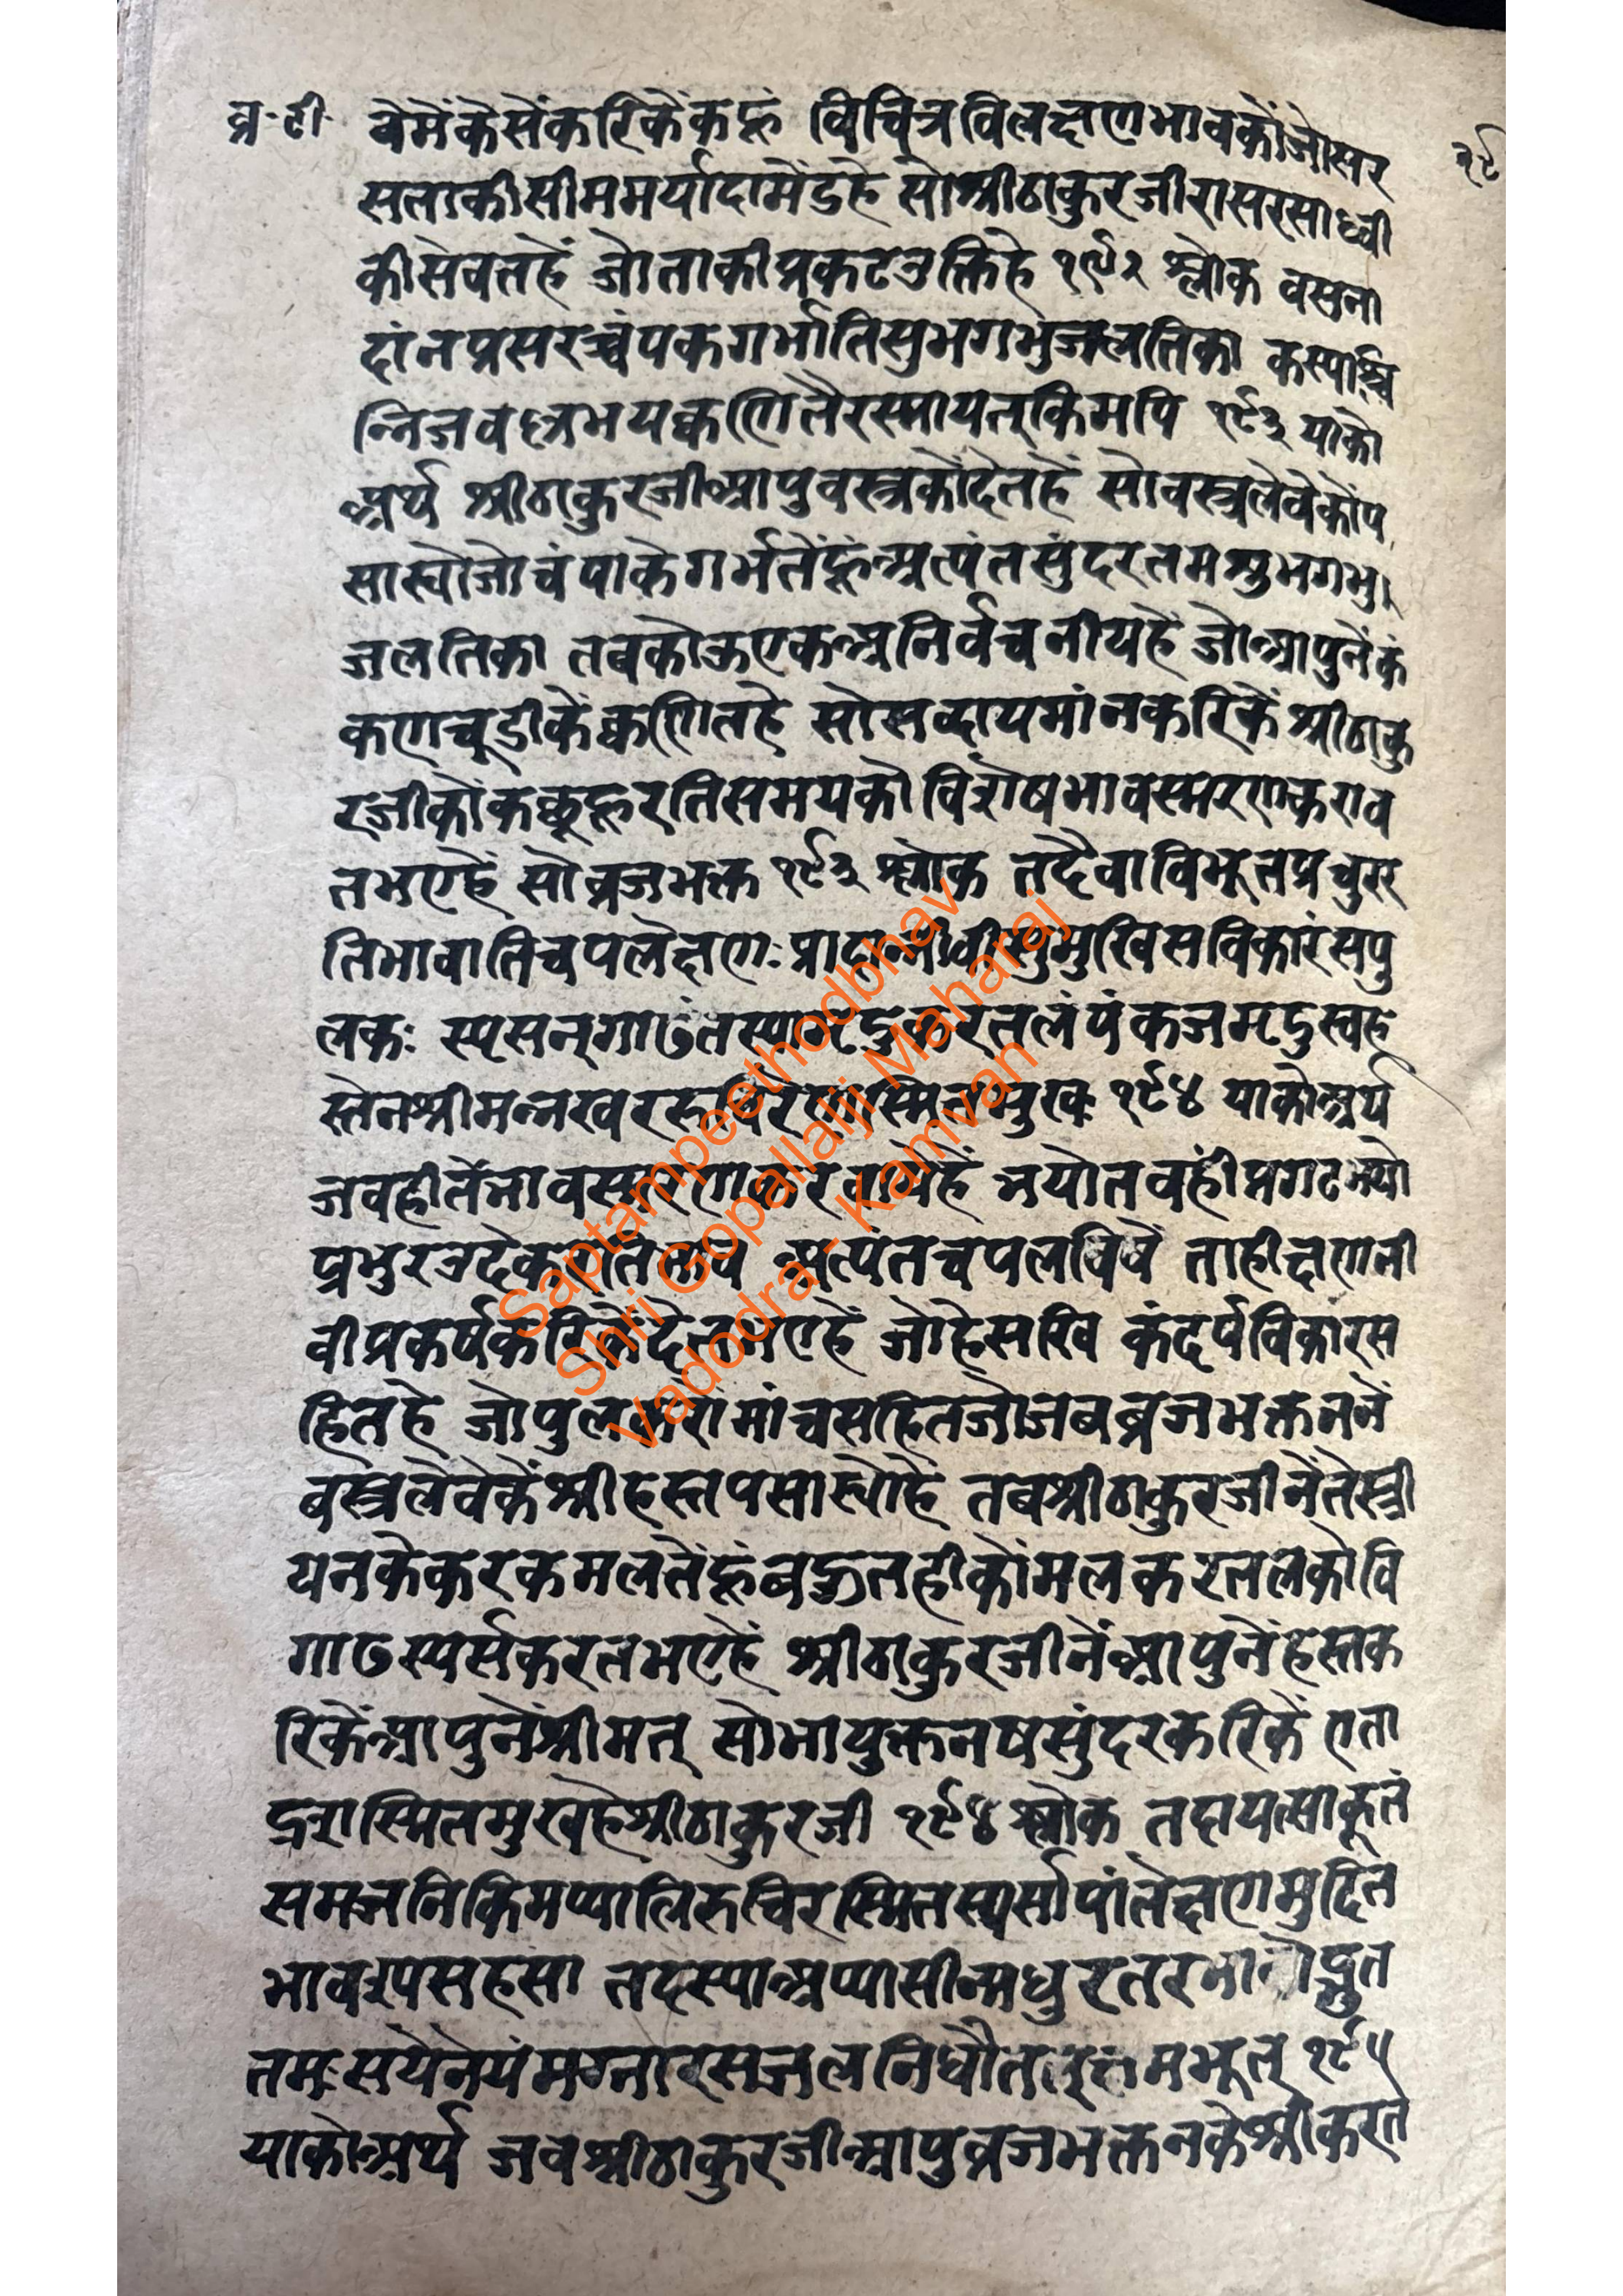 व्र॰ टी॰ वैमैंकैसेंकरिकेंकहूं विचित्रविलक्षणभावकोंजोसर
सताकीसीममर्यादामेंडुहै सोश्रीठाकुरजीराससाध्वी
कीसेवतहैं जोताकीप्रकटउक्तिहै १९२ श्लोक वसना
दांनप्रसरच्चंपकगर्भातिसुभगभुजलतिका कस्याश्चि
न्निजव क्वणितैरस्मायतत्किमपि १९३ याको
अर्थ श्रीठाकुरजीआपुवस्त्रकोंदेतहैं सोवस्त्रलेवेकोंप
सास्योजोचंपाकेगर्भतेंहूंअत्यंतसुंदरतमशुभगभु
जलतिका तबकोऊएकअनिर्वचनीयहै जोआपुनेंकं
कणचूडीकेंक्वणितहै सोसब्दायमांनकरिकें श्रीठाकु
रजीकोंकछूहूरतिसमयकोविशेषभावस्मरणकराव
तभएहैं सोव्रजभक्त १९३ श्लोक तदैवाविर्भूतप्रचुरर
तिभावातिचपलेक्षणः प्रादान्नीवीसुमुखिसविकारंसपु
लकः स्पृसन्गाढंतस्यामृदुकरतलंपंकजमृदुस्वह
स्तेनश्रीमन्नखररुचिरेणस्मितमुखः १९४ याकोअर्थ
जवहीतेंभावस्मरणकरवायेहैं भयोतवहीप्रगटभयो
प्रभुर रतिभाव अत्यंतचपलविषें ताहीक्षणनी
वीप्रकर्षकरिकेंदेतभएहैं जोहेसखि कंदर्पविकारस
हितहै जोपुलकरोमांचसहितजोजबव्रजभक्तननें
बस्त्रलेवेकेंश्रीहस्तपसास्योहै तबश्रीठाकुरजीनेंतेस्त्री
यनकेकरकमलतेंहूंबहुतहीकोंमलकरतलकोवि
गाढस्पर्सकरतभएहैं श्रीठाकुरजीनेंआपुनेंहस्तक
रिकेंआपुनेंश्रीमत् सोभायुक्तनषसुंदरकरिकें एता
द्रशस्मितमुखहैश्रीठाकुरजी १९४ श्लोक तदायत्साकूतं
समजनिकिमप्यालिरुचिरस्मितस्पर्सापांलेक्षणमुदित
भावस्यसहसा तदस्याअप्यासीन्मधुरतर
तमःसयेनेयंमग्नारसजलनिधौत मभूत् १९५
याकोअर्थ जवश्रीठाकुरजीआपुव्रजभक्तनकेश्रीकरत
Saptampeethodbhav
Shri Gopallalji Maharaj
Vadodra - Kamvan